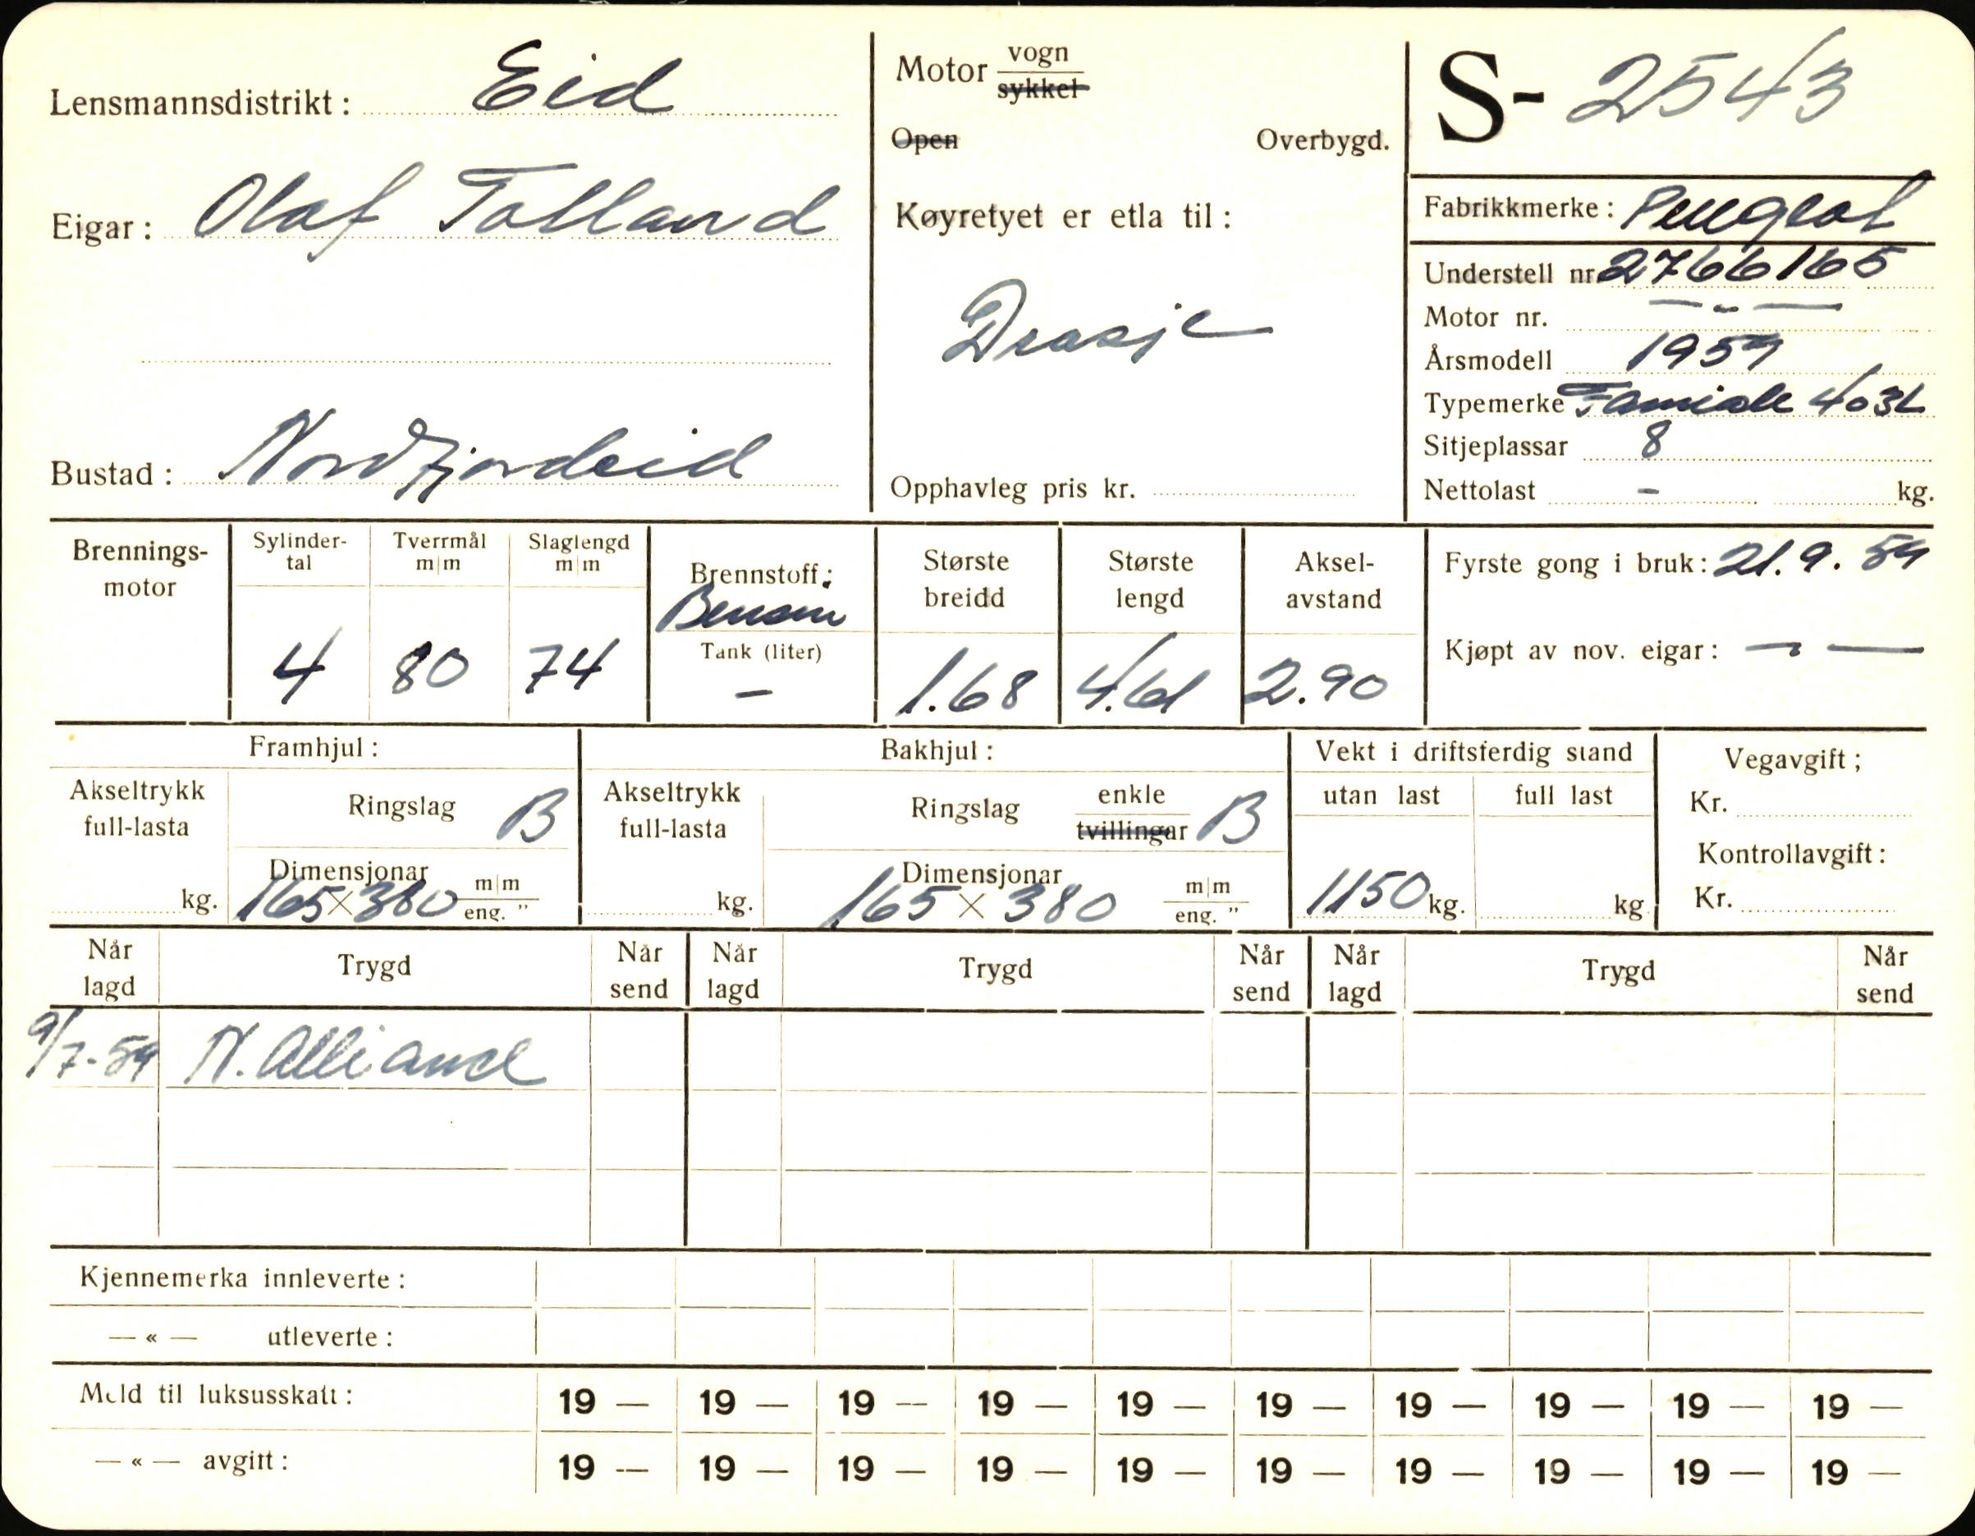 Lensmannsdistrikt: Eid
Eigar: Olaf Tolland
Bustad: Nordfjordeid
Motor vogn
sykkel
Open Overbygd.
Køyretyet er etla til:
Drosje
Opphavleg pris kr.
S- 2543
Fabrikkmerke: Peugeot
Understell nr. 2766165
Motor nr. — „ —
Årsmodell 1959
Typemerke Familale 403L
Sitjeplassar 8
Nettolast - kg.
Brennings-
motor
Sylinder-
tal
4
Tverrmål
m|m
80
Slaglengd
m|m
74
Brennstoff:
Bensin
Tank (liter)
-
Største
breidd
1.68
Største
lengd
4.61
Aksel-
avstand
2.90
Fyrste gong i bruk: 21.9.59
Kjøpt av nov. eigar: — „ —
Framhjul:
Akseltrykk
full-lasta
kg.
Ringslag B
Dimensjonar
165 × 380 m|m
eng. "
Bakhjul:
Akseltrykk
full-lasta
kg.
Ringslag enkle
tvillingar B
Dimensjonar
165 × 380 m|m
eng. "
Vekt i driftsferdig stand
utan last full last
1150 kg. kg
Vegavgift;
Kr.
Kontrollavgift:
Kr.
Når
lagd Trygd Når
send Når
lagd Trygd Når
send Når
lagd Trygd Når
send
9/7-59 N. Alliance
Kjennemerka innleverte:
— « — utleverte:
Meld til luksusskatt: 19 — 19 — 19 — 19 — 19 — 19 — 19 — 19 — 19 — 19 —
— « — avgitt: 19 — 19 — 19 — 19 — 19 — 19 — 19 — 19 — 19 — 19 —